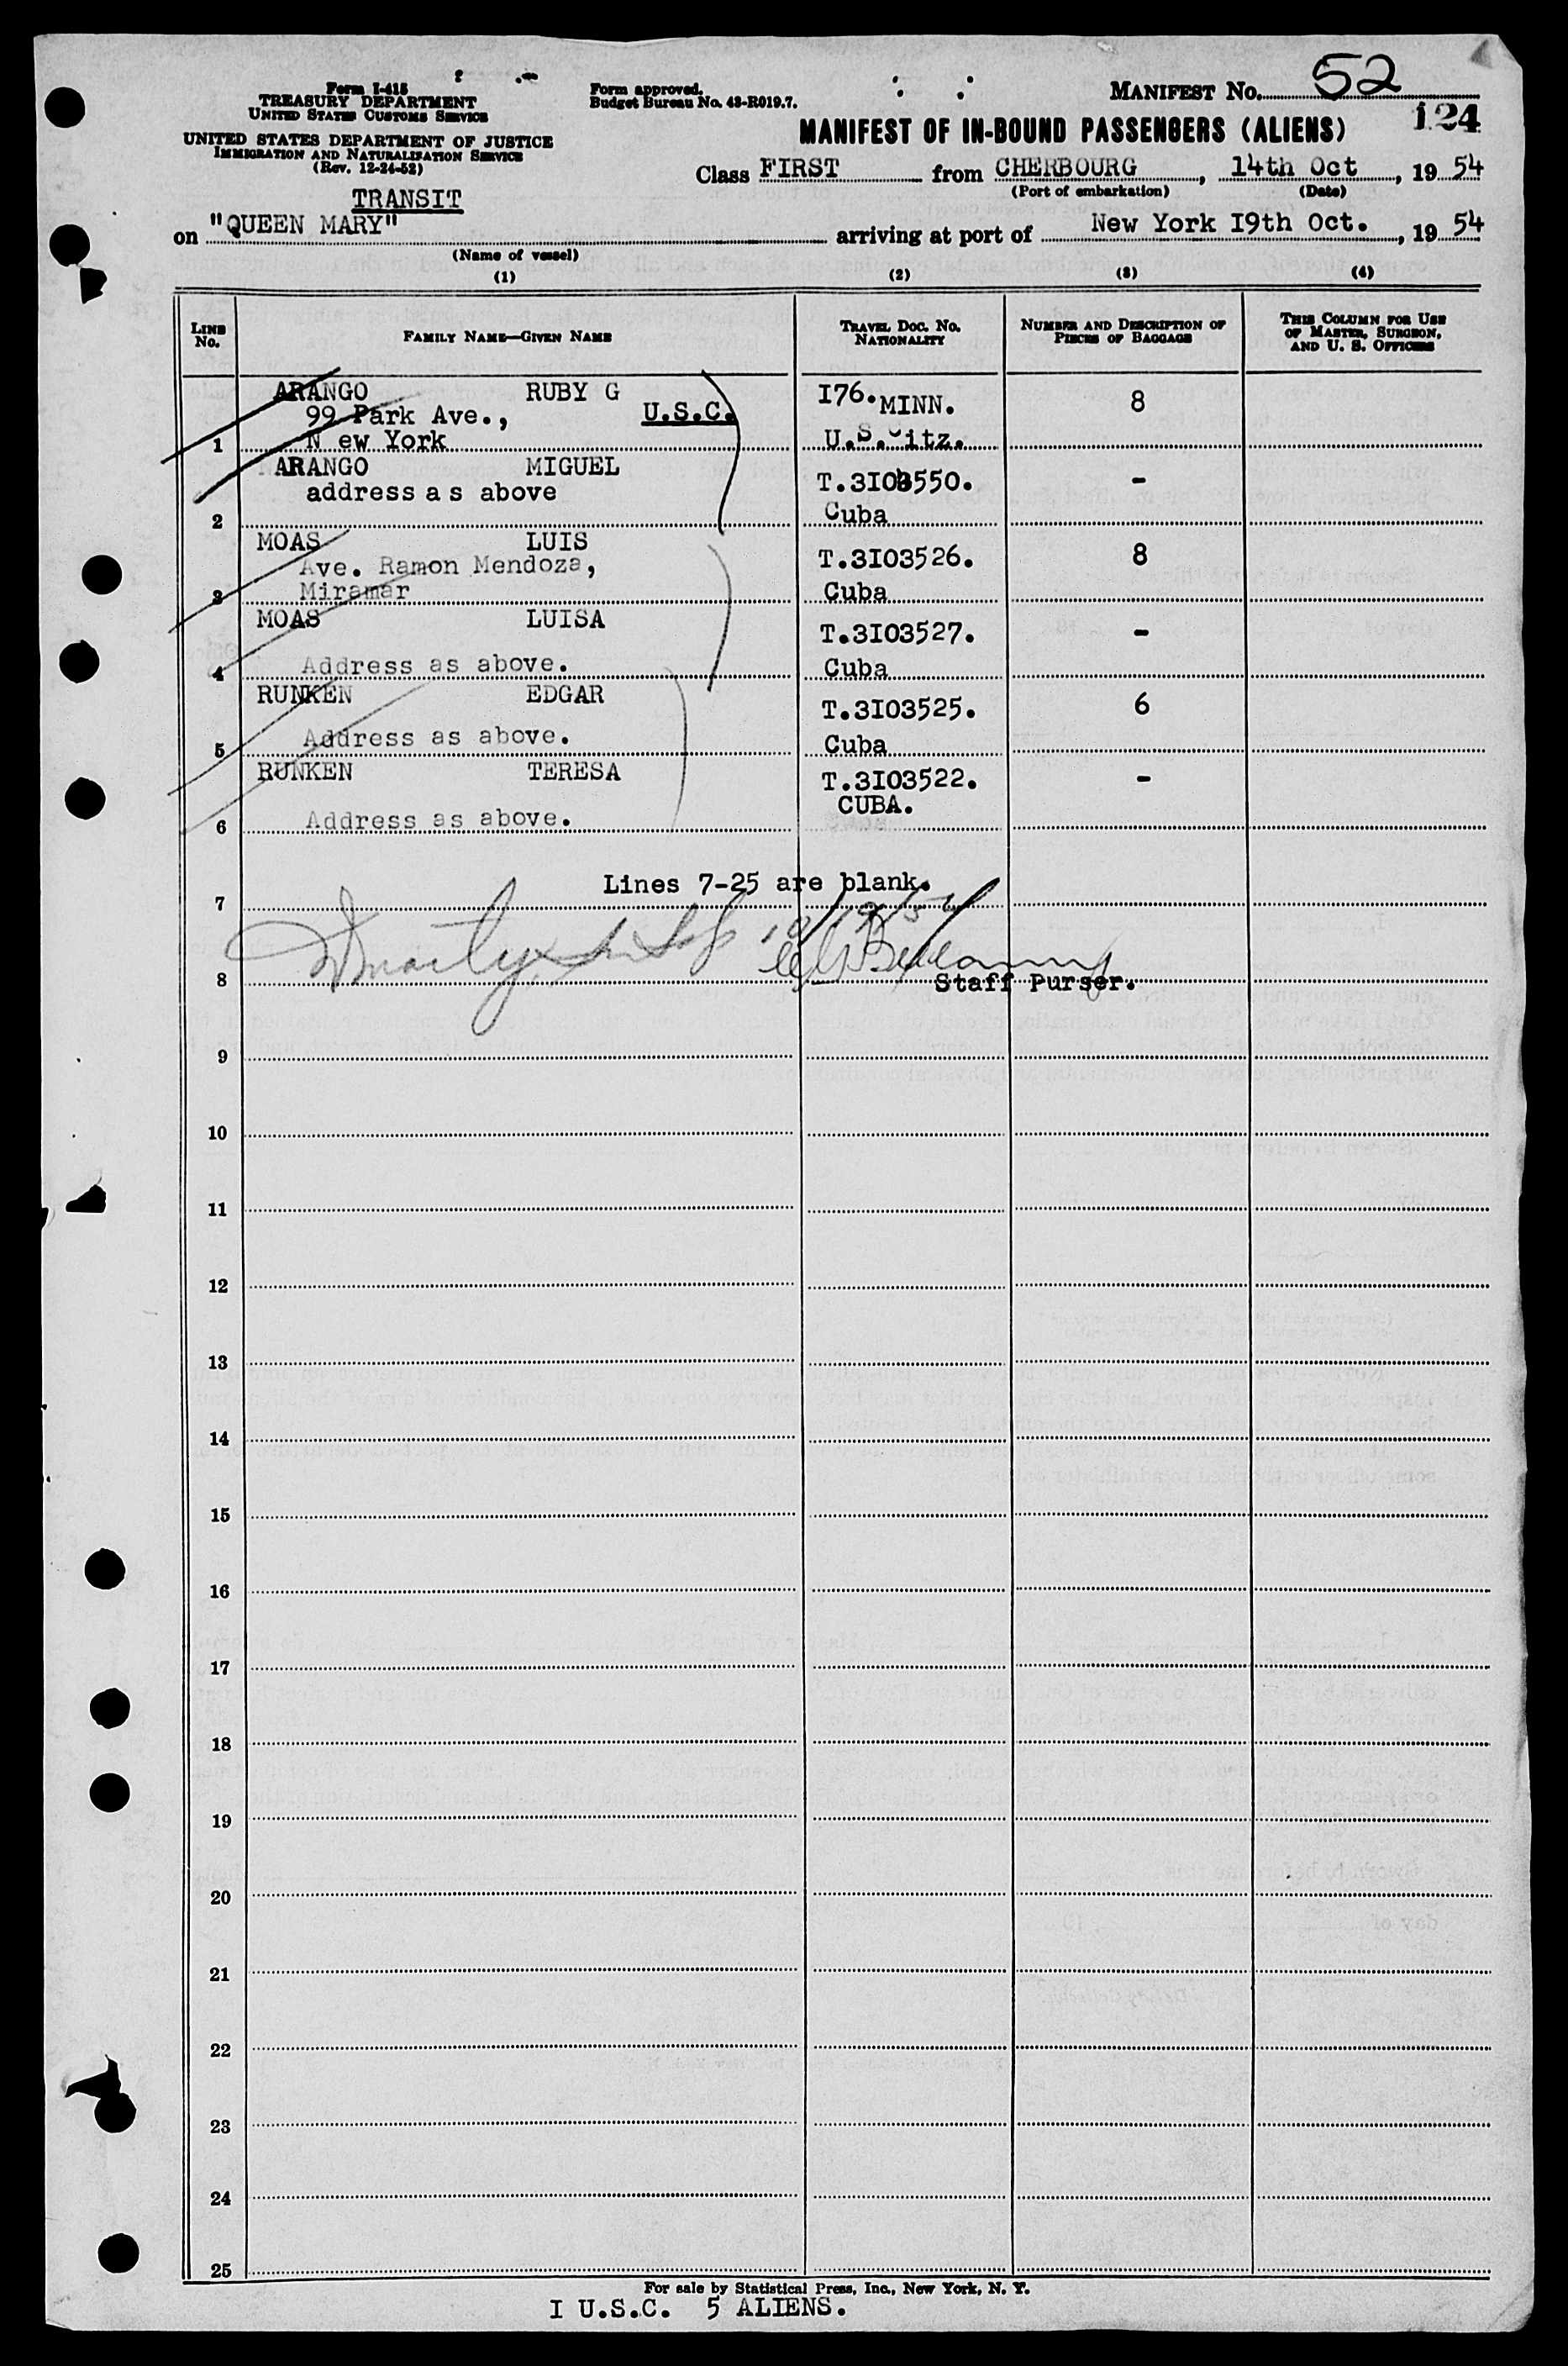 Form I-415
TREASURY DEPARTMENT
UNITED STATES CUSTOMS SERVICE
UNITED STATES DEPARTMENT OF JUSTICE
IMMIGRATION AND NATURALIZATION SERVICE
(Rev. 12-24-52)
Form approved.
Budget Bureau No. 43-R019.7.
MANIFEST No. 52
124
MANIFEST OF IN-BOUND PASSENGERS (ALIENS)
Class FIRST from CHERBOURG, 14th Oct, 19 54
(Port of embarkation) (Date)
TRANSIT
on "QUEEN MARY" arriving at port of New York I9th Oct., 19 54
(Name of vessel)
(1) (2) (3) (4)
LINE No. FAMILY NAME—GIVEN NAME TRAVEL DOC. No. NATIONALITY NUMBER AND DESCRIPTION OF PIECES OF BAGGAGE THIS COLUMN FOR USE OF MASTER, SURGEON, AND U. S. OFFICERS
ARANGO RUBY G I76. MINN. 8
99 Park Ave., U.S.C.
1 N ew York U.S.Citz.
ARANGO MIGUEL T.3I03550. -
address a s above
2 Cuba
MOAS LUIS T.3I03526. 8
Ave. Ramon Mendoza,
3 Miramar Cuba
MOAS LUISA T.3I03527. -
4 Address as above. Cuba
RUNKEN EDGAR T.3I03525. 6
5 Address as above. Cuba
RUNKEN TERESA T.3I03522. -
CUBA.
6 Address as above.
Lines 7-25 are blank.
7
10/19/54
8 Staff Purser.
9
10
11
12
13
14
15
16
17
18
19
20
21
22
23
24
25
For sale by Statistical Press, Inc., New York, N. Y.
I U.S.C. 5 ALIENS.